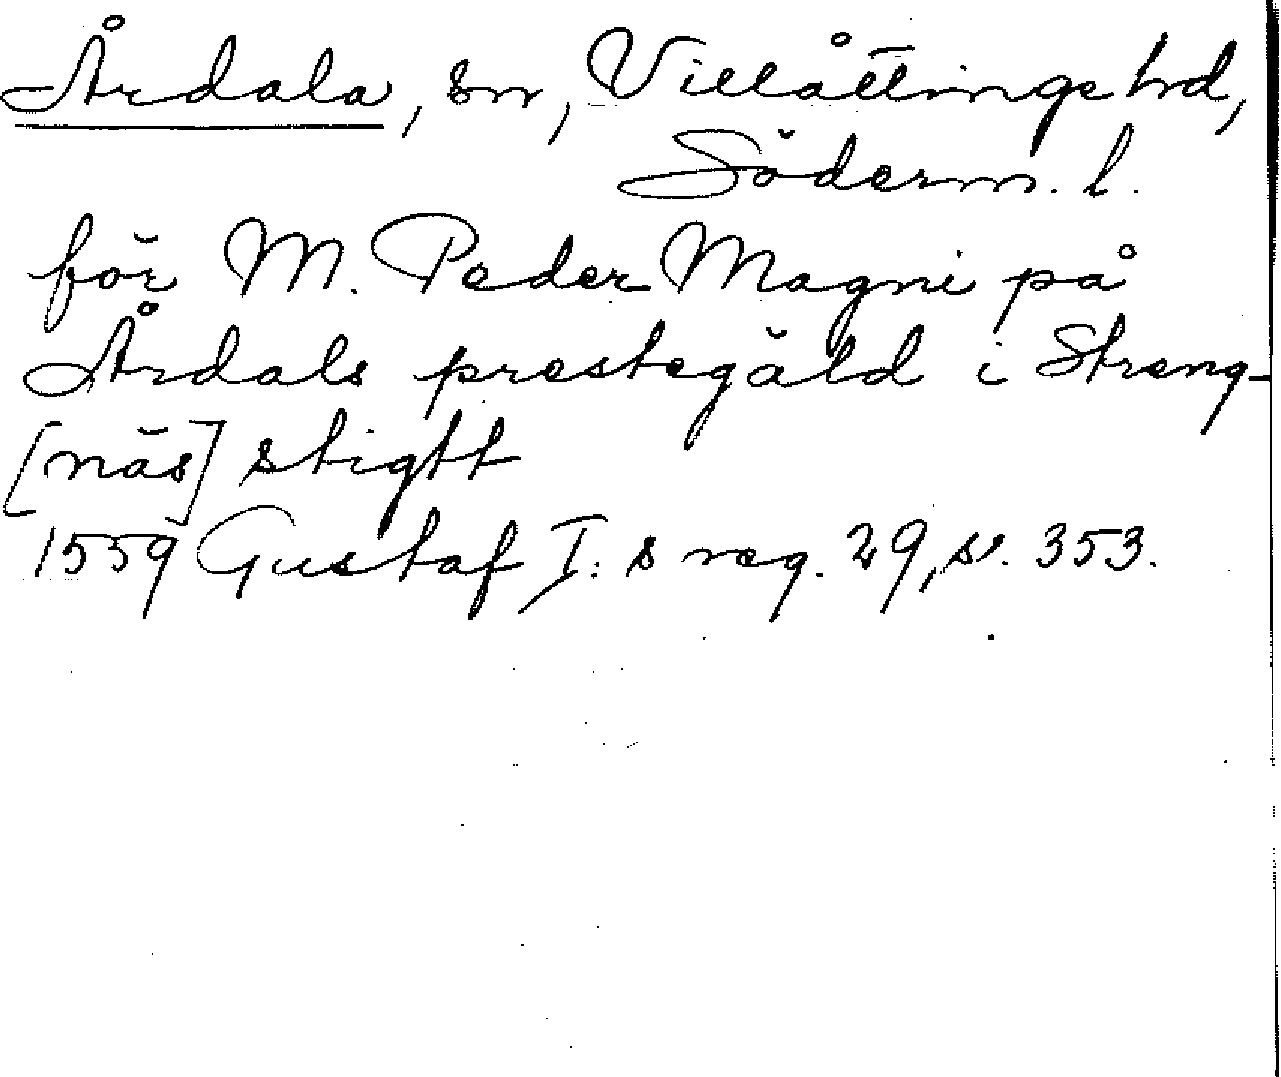 Årdala, sn, Villåttinge hd,
Söderm. l.
för M. Peder Magni på
Årdals prestegäld i Streng-
[näs] stigtt
1559 Gustaf I:s reg. 29, s. 353.